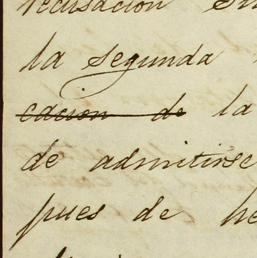 recusacion
la segunda
cacion de la
de admitirse
pues de he